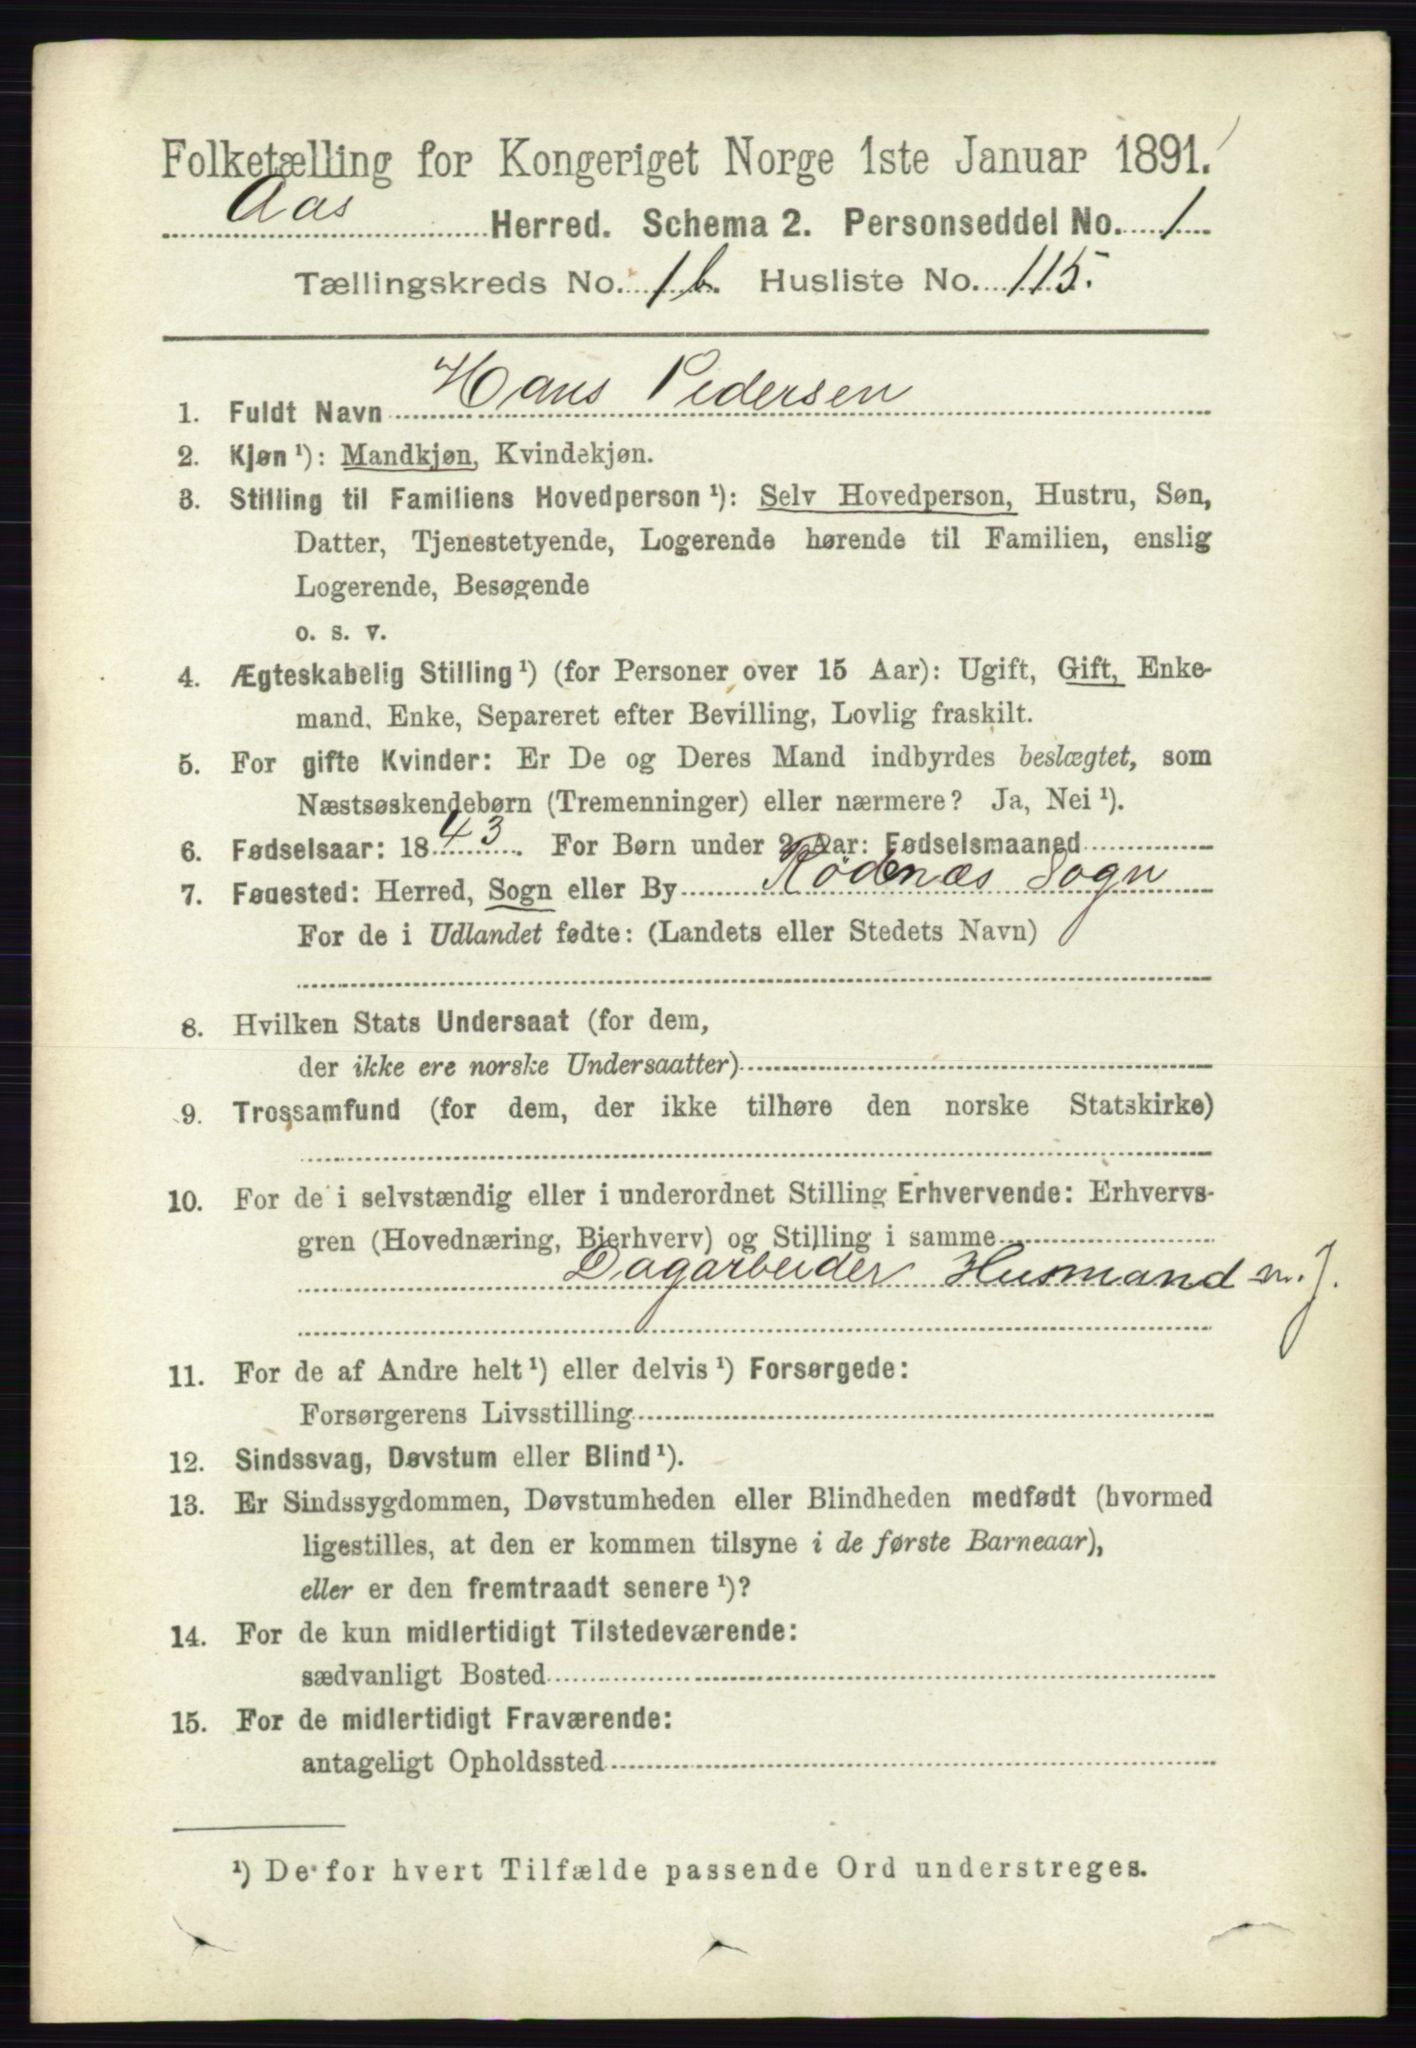 Folketælling for Kongeriget Norge 1ste Januar 1891.
Aas Herred. Schema 2. Personseddel No. 1
Tællingskreds No. 1b. Husliste No. 115.
1. Fuldt Navn Hans Pedersen
2. Kjøn ¹): Mandkjøn, Kvindekjøn.
3. Stilling til Familiens Hovedperson ¹): Selv Hovedperson, Hustru, Søn,
Datter, Tjenestetyende, Logerende hørende til Familien, enslig
Logerende, Besøgende
o. s. v.
4. Ægteskabelig Stilling ¹) (for Personer over 15 Aar): Ugift, Gift, Enke-
mand, Enke, Separeret efter Bevilling, Lovlig fraskilt.
5. For gifte Kvinder: Er De og Deres Mand indbyrdes beslægtet, som
Næstsøskendebørn (Tremenninger) eller nærmere? Ja, Nei ¹).
6. Fødselsaar: 1843. For Børn under 2 Aar: Fødselsmaaned
7. Fødested: Herred, Sogn eller By Rødenæs Sogn
For de i Udlandet fødte: (Landets eller Stedets Navn)
8. Hvilken Stats Undersaat (for dem,
der ikke ere norske Undersaatter)
9. Trossamfund (for dem, der ikke tilhøre den norske Statskirke)
10. For de i selvstændig eller i underordnet Stilling Erhvervende: Erhvervs-
gren (Hovednæring, Bierhverv) og Stilling i samme
Dagarbeider Husmand m. J.
11. For de af Andre helt ¹) eller delvis ¹) Forsørgede:
Forsørgerens Livsstilling
12. Sindssvag, Døvstum eller Blind ¹).
13. Er Sindssygdommen, Døvstumheden eller Blindheden medfødt (hvormed
ligestilles, at den er kommen tilsyne i de første Barneaar),
eller er den fremtraadt senere ¹)?
14. For de kun midlertidigt Tilstedeværende:
sædvanligt Bosted
15. For de midlertidigt Fraværende:
antageligt Opholdssted
¹) De for hvert Tilfælde passende Ord understreges.